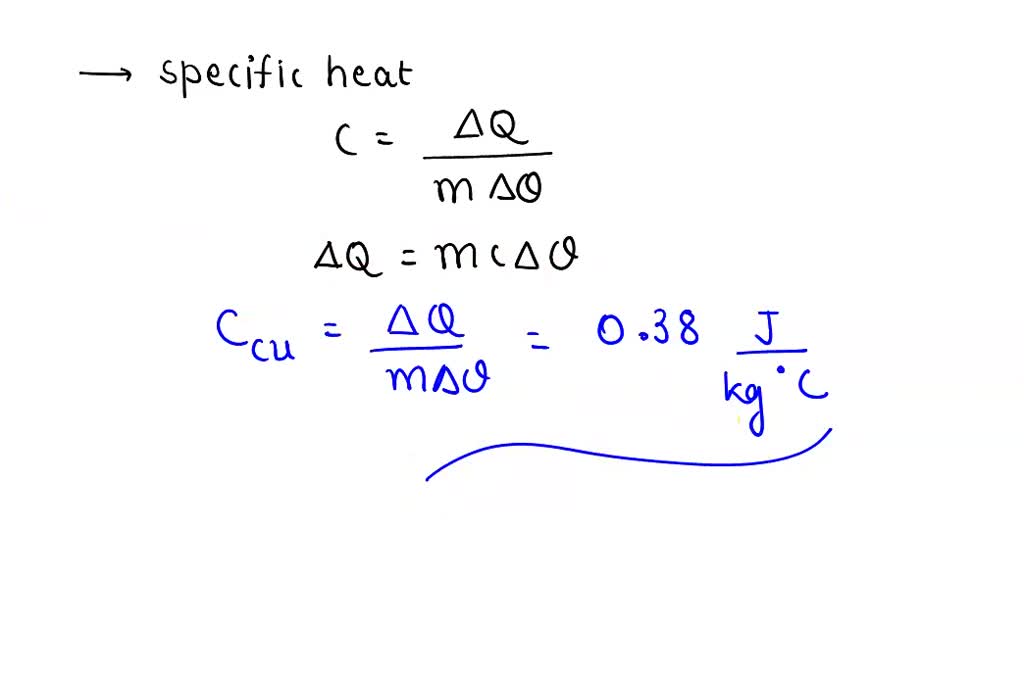 → specific heat
C = ΔQ / mΔθ
ΔQ = mcΔθ
Ccu = ΔQ / mΔθ = 0.38 J / kg°C